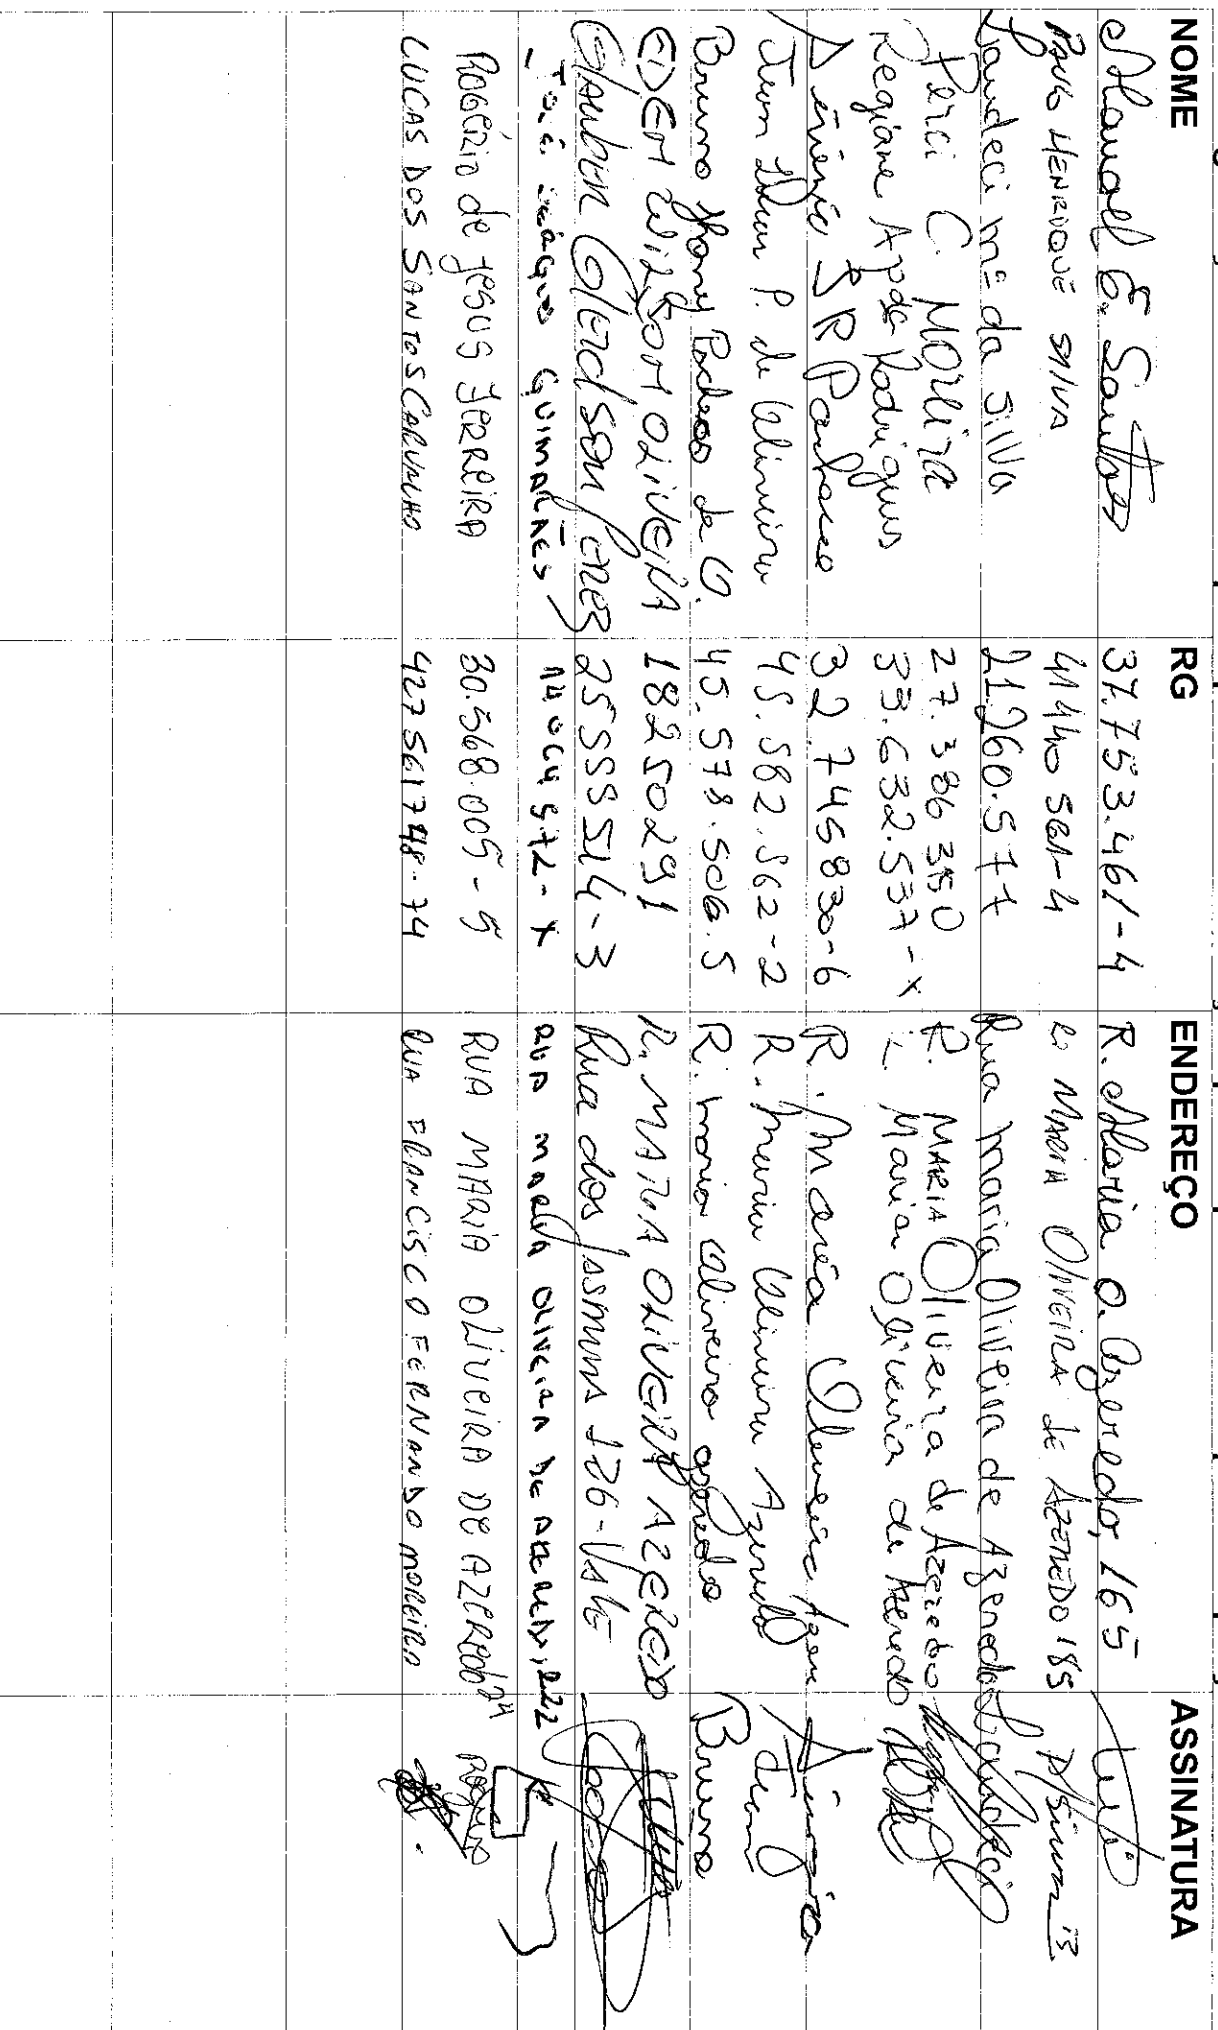 NOME RG ENDEREÇO ASSINATURA
E. Santos 37.753.461-4 R. Maria O. Azeredo, 165
Paulo HENRIQUE SILVA 41440 561-4 MARIA OLIVEIRA de AZEREDO 185
Laudeci mª da Silva 21.260.577 Rua maria Oliveira de Azeredo Laudeci
Perci C. MOREIRA 27.386 3150 R. MARIA Oliveira de Azeredo
Regiane Apda Rodrigues 33.632.537-x R. Maria Oliveira de Azeredo
S R Pacheco 32.745830-6 R. Maria Oliveira
Jean P. de Oliveira 45.582.562-2 R. Maria Oliveira Azeredo Jean
Bruno Jhony Pacheco de O. 45.578.506.5 R. maria Oliveira azeredo Bruno
EDEM WILSOM OLIVEIRA 18250291 R. MARIA OLIVEIRA AZEREDO
Glauber Gleidson Peres 25555514-3 Rua dos Jasmins 126-Vale
José GUIMARÃES 14 064 572-x RUA MARIA OLIVEIRA DE AZEREDO, 222
Rogério de JESUS FERREIRA 30.568.005-5 RUA MARIA OLIVEIRA DE AZEREDO 24
LUCAS DOS SANTOS CARVALHO 427561748-74 RUA FRANCISCO FERNANDO moreira